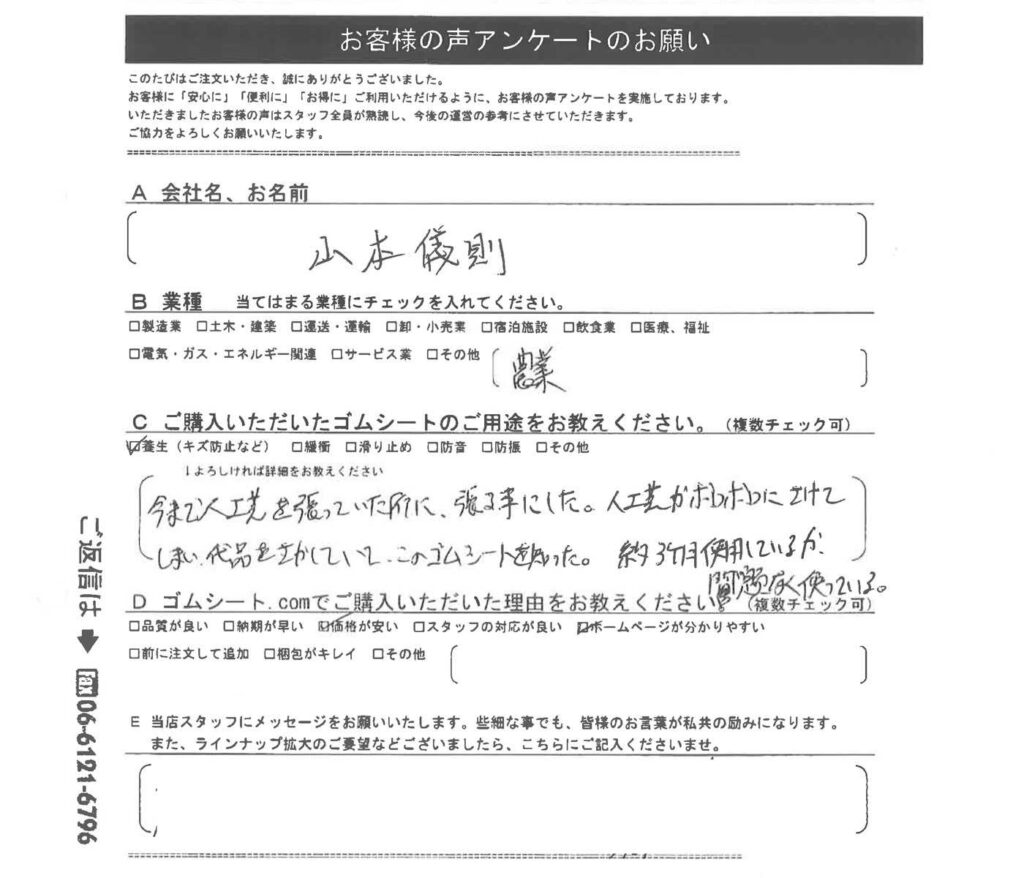 お客様の声アンケートのお願い
このたびはご注文いただき、誠にありがとうございました。
お客様に「安心に」「便利に」「お得に」ご利用いただけるように、お客様の声アンケートを実施しております。
いただきましたお客様の声はスタッフ全員が熟読し、今後の運営の参考にさせていただきます。
ご協力をよろしくお願いいたします。
A 会社名、お名前
山本儀則
B 業種 当てはまる業種にチェックを入れてください。
□製造業 □土木・建築 □運送・運輸 □卸・小売業 □宿泊施設 □飲食業 □医療、福祉
□電気・ガス・エネルギー関連 □サービス業 □その他 農業
C ご購入いただいたゴムシートのご用途をお教えください。（複数チェック可）
☑養生（キズ防止など） □緩衝 □滑り止め □防音 □防振 □その他
↓よろしければ詳細をお教えください
今まで人工芝を張っていた所に、張る事にした。人工芝がボロボロにさけて
しまい、代品をさがしていて、このゴムシートを知った。 約3ヶ月使用しているが、
問題なく使っている。
D ゴムシート.comでご購入いただいた理由をお教えください。（複数チェック可）
□品質が良い □納期が早い ☑価格が安い □スタッフの対応が良い ☑ホームページが分かりやすい
□前に注文して追加 □梱包がキレイ □その他
E 当店スタッフにメッセージをお願いいたします。些細な事でも、皆様のお言葉が私共の励みになります。
また、ラインナップ拡大のご要望などございましたら、こちらにご記入くださいませ。
ご返信は➡fax06-6121-6796